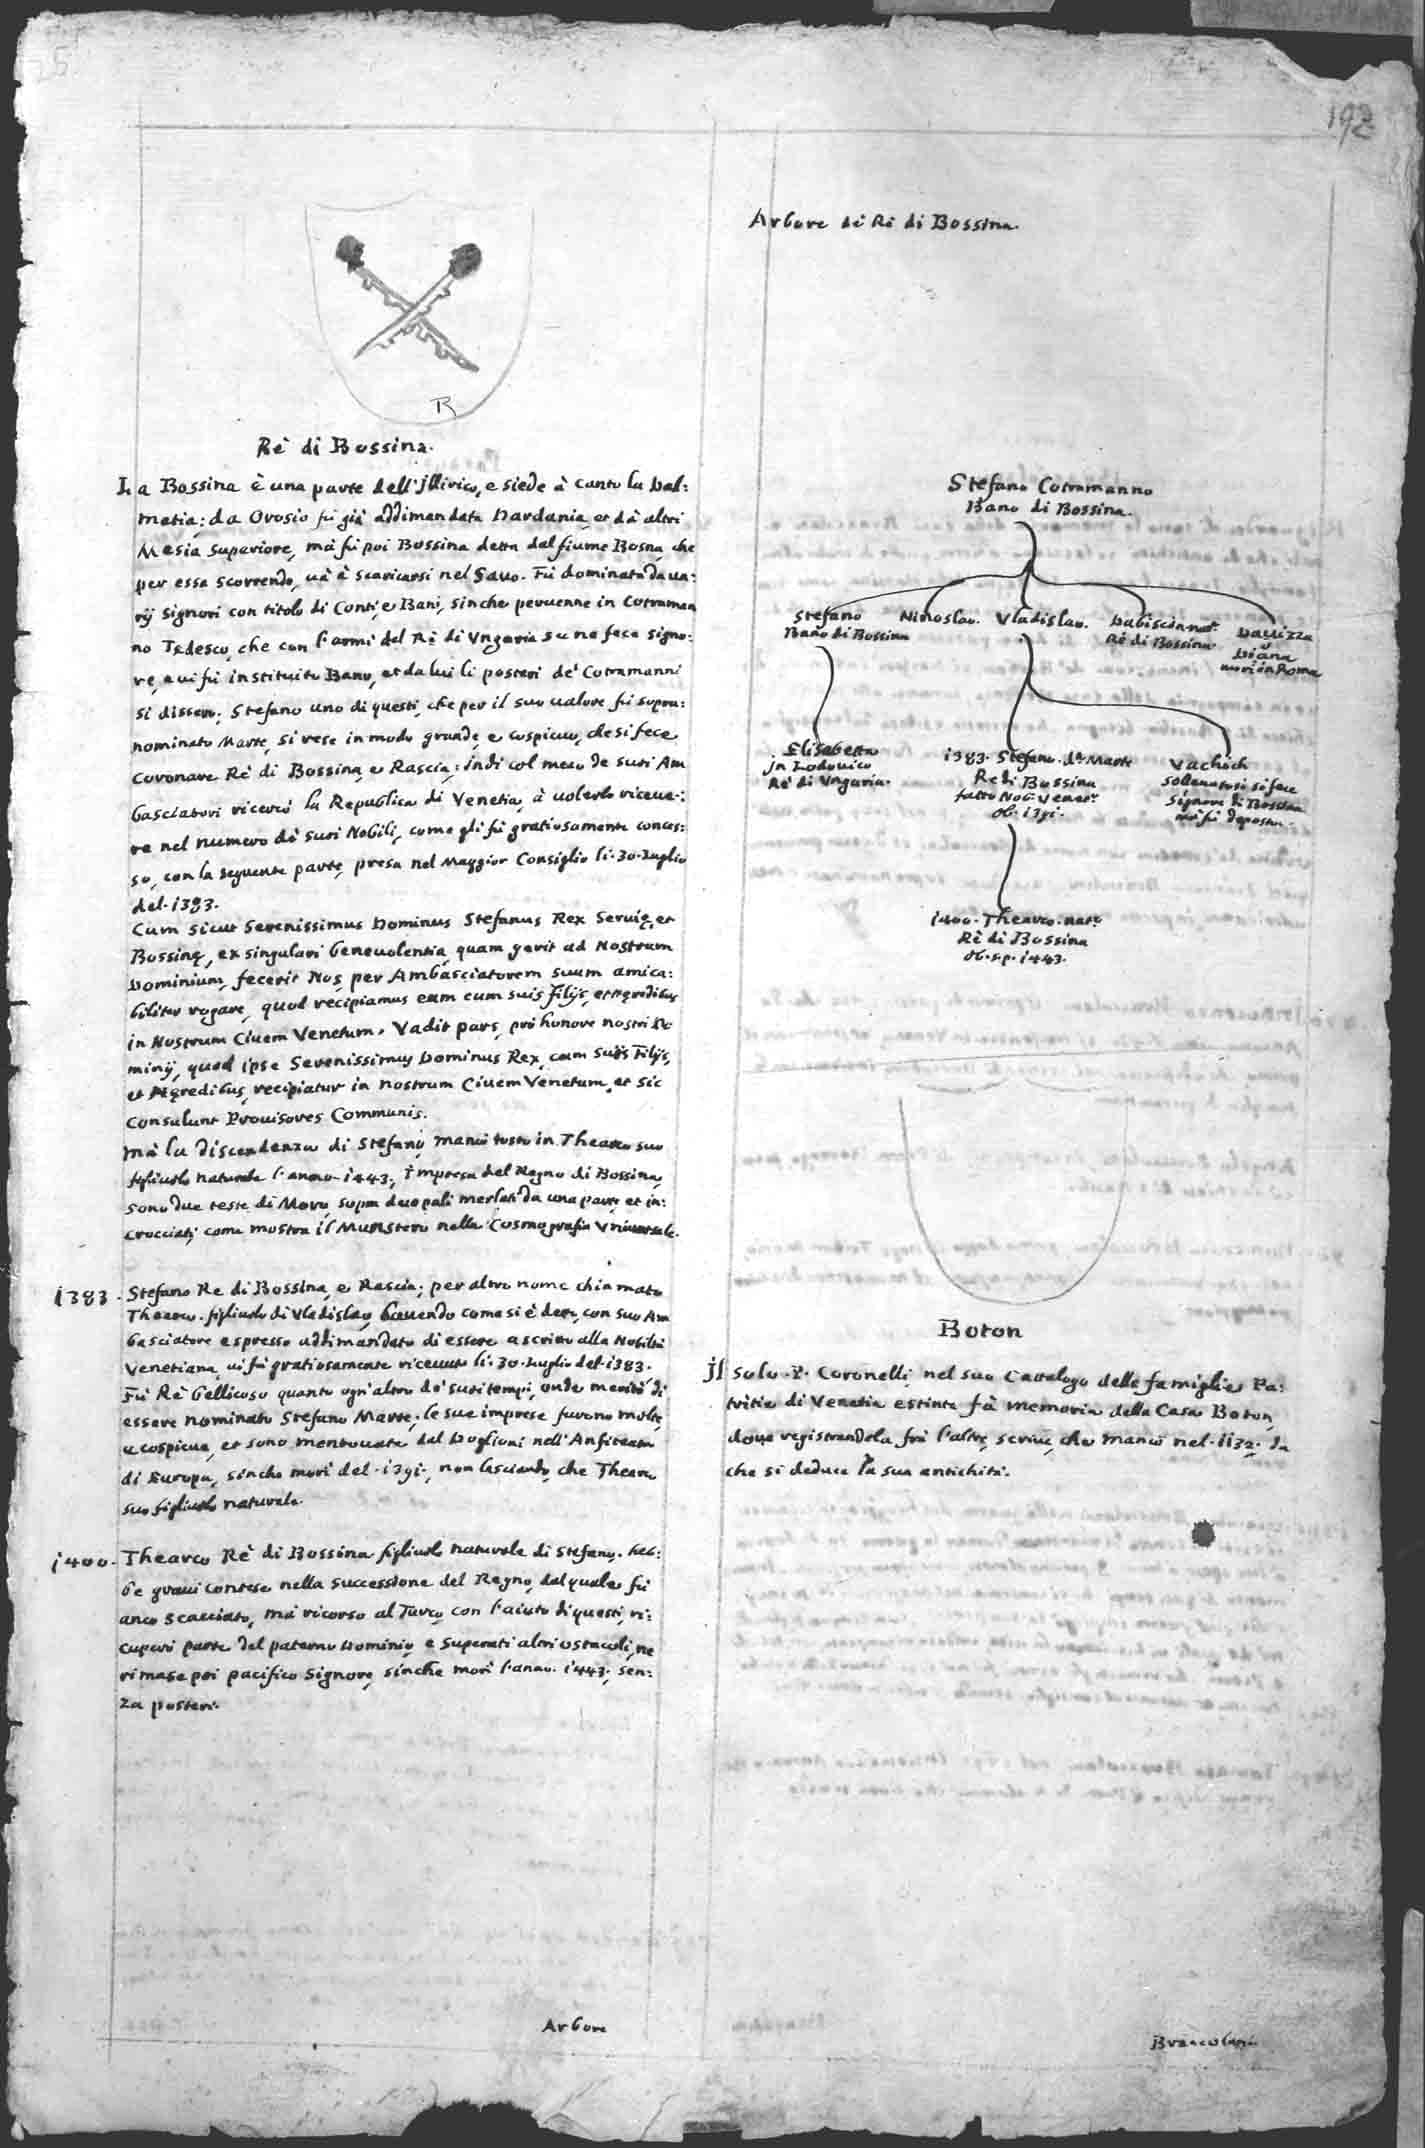 192
R
Rè di Bossina.
La Bossina è una parte dell'jllirico, e siede à canto la Dal:
matia; da Orosio fù già addimandata Dardania, et da altri
Mesia superiore, mà fù poi Bossina detta dal fiume Bosna, che
per essa scorrendo, uà à scaricarsi nel Sauo. Fù dominata da ua:
rij Signori con titolo di Conti, e Bani, sinche peruenne in Cotraman
no Tedesco, che con l'armi del Rè di Vngaria se ne fece Signo:
re, e ui fù instituito Bano, et da lui li posteri de' Cotramanni
si dissero; Stefano uno di questi, che per il suo ualore fù sopra:
nominato Marte, si rese in modo grande, e cospicuo, che si fece
Coronare Rè di Bossina, e Rascia; indi col mezo de suoi Am
basciatori ricercò la Republica di Venetia, à uolerlo riceue:
re nel numero de suoi Nobili, come gli fù gratiosamente conces:
so, con la seguente parte, presa nel Maggior Consiglio li. 30. Luglio
del. 1383.
Cum sicut Serenissimus Dominus Stefanus Rex Seruię, et
Bossinę, ex singulari beneuolentia, quam gerit ad Nostrum
Dominium, fecerit Nos, per Ambasciatorem suum amica:
biliter rogare, quod recipiamus eum cum suis filijs, et Hęredibus
in Nostrum Ciuem Venetum. Vadit pars, prò honore nostri Do
minij, quod ipse Serenissimus Dominus Rex, cum suijs Filijs,
et Hęredibus, recipiatur in nostrum Ciuem Venetum, et sic
consulunt Prouisores Communis.
Mà la discendenza di Stefano mancò tosto in Thearco suo
figliuolo naturale l'anno. 1443, Impresa del Regno di Bossina,
sono due teste di Moro, sopra duo pali merlati da una parte et in:
crocciati, come mostra il Munstero nella Cosmografia Vniuersale.
1383. Stefano Re di Bossina, e Rascia; per altro nome chiamato
Thearco. figliuolo di Vladislao, hauendo come si è detto, con suo Am
basciatore espresso addimandato di essere ascritto alla Nobiltà
Venetiana, ui fù gratiosamente riceuuto li. 30. Luglio del. 1383.
Fù Rè bellicoso quanto ogn'altro de' suoi tempi, onde meritò di
essere nominato Stefano Marte; le sue imprese furono molte,
e cospicue, et sono mentouate dal Doglioni nell'Anfiteatro
di Europa, sinche morì del. 1391., non lasciando, che Thearco
suo figliuolo naturale.
1400. Thearco Rè di Bossina figliuolo naturale di Stefano. heb:
be graui contese nella successione del Regno, dal quale fù
anco scacciato, mà ricorso al Turco, con l'aiuto di questi, ri:
cuperò parte del paterno Dominio, e superati altri ostacoli, ne
rimase poi pacifico Signore, sinche morì l'anno. 1443, sen:
za posteri.
Arbore
Arbore de Rè di Bossina.
Stefano Cotramanno
Bano di Bossina.
Stefano
Bano di Bossina
Ninoslao.
Vladislao.
Dabiscia nat.
Rè di Bossina.
Dauizza
ò
Diana
morì in Roma
Elisabetta
jn Lodouico
Rè di Vngaria.
1383. Stefano. do. Marte
Re di Bossina
fatto Nob. Venet.o
ob. 1391.
Vachich
solleuatosi si fece
Signore di Bossina
mà fù deposto.
1400. Thearco. nat.e
Rè di Bossina
ob. s.p. 1443.
Boton
jl solo. P. Coronelli nel suo Cattalogo delle famiglie Pa:
tritie di Venetia estinte fà memoria della Casa Boton,
doue registrandola frà l'altre, scriue, che mancò nel. 1132. Da
che si deduce la sua antichità.